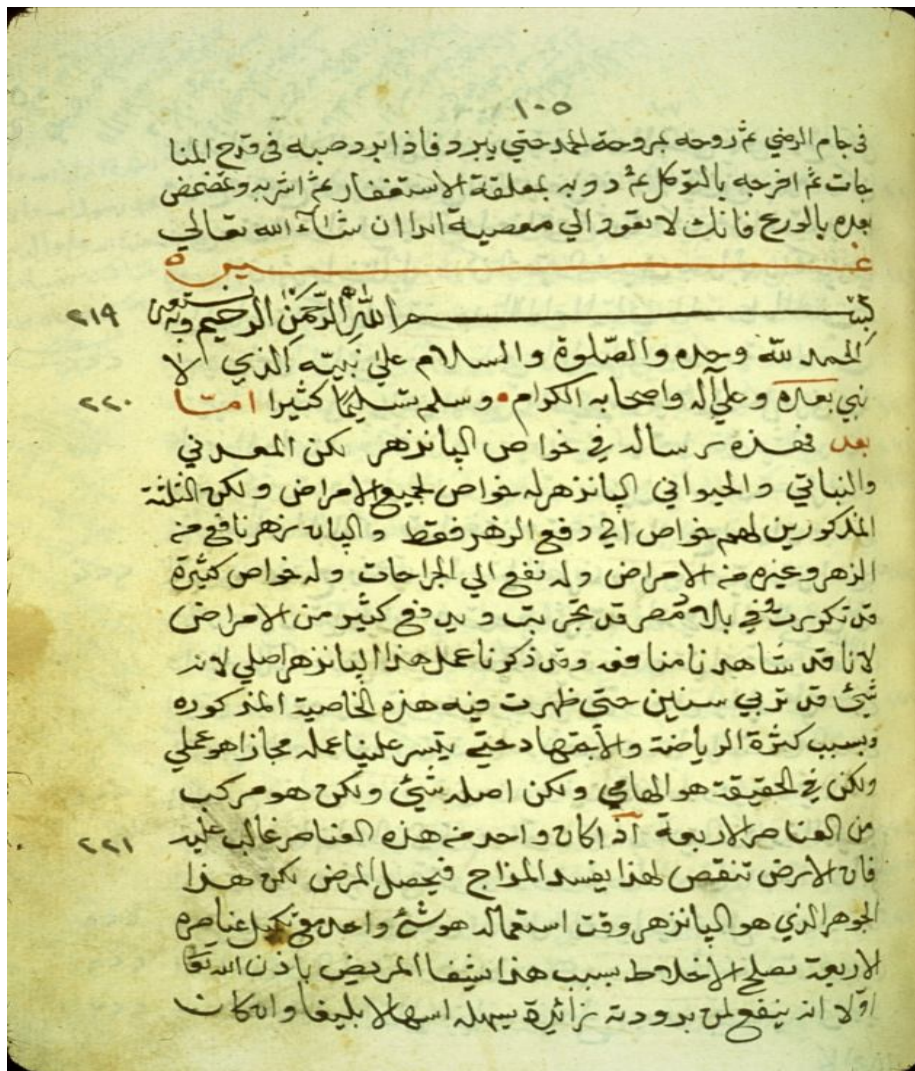 ١٠٥
في جام الرضي ثم روحه بمروحة الحمد حتي يبرد فاذا ابرد صبه في قدح المنا
جات ثم افرحه بالتوكل ثم دوبه بمعلقة الاستغفار ثم اشربه وتمضمض
بعده بالورع فانك لا تعود الي معصية ابدا ان شاء الله تعالي
بسم الله الرحمن الرحيم وبه نستعين ٢١٩
الحمد لله وحده والصلوة والسلام علي نبيه الذي لا
نبي بعده وعلي آله واصحابه الكرام وسلم تسليما كثيرا اما ٢٢٠
بعد فهذه رسالة في خواص البانزهر لكن المعدني
والنباتي والحيواني البانزهر له خواص لجميع الامراض ولكن الثلثة
المذكورين لهم خواص الي دفع الزهر فقط والبانزهر نافع من
الزهر وغيره من الامراض وله نفع الي الجراحات وله خواص كثيرة
قد تكررت في بلاد مصر قد تجربت ويدفع كثير من الامراض
لانا قد شاهدنا منافعه وقد ذكرنا عمل هذا البانزهر اصلي لانه
شئ قد تربي سنين حتي ظهرت فيه هذه الخاصية المذكوره
وبسبب كثرة الرياضة والاجتهاد حتي يتسر علينا عمله مجازا هو عملي
ولكن في الحقيقة هو الهامي ولكن اصله شئ ولكن هو مركب
من العناصر الاربعة اذ اكان واحد من هذه العناصر غالب عليه ٢٢١
فان الارض تنقص لهذا يفسد المزاج فيحصل المرض لكن هذا
الجوهر الذي هو البانزهر وقت استعماله هو شئ واحد مع تكميل عناصره
الاربعة يصلح الاخلاط بسبب هذا يشفا المريض باذن الله تعا
اولا انه ينفع لمن برودته زائيدة يسهله اسهالا بليغا وان كانت